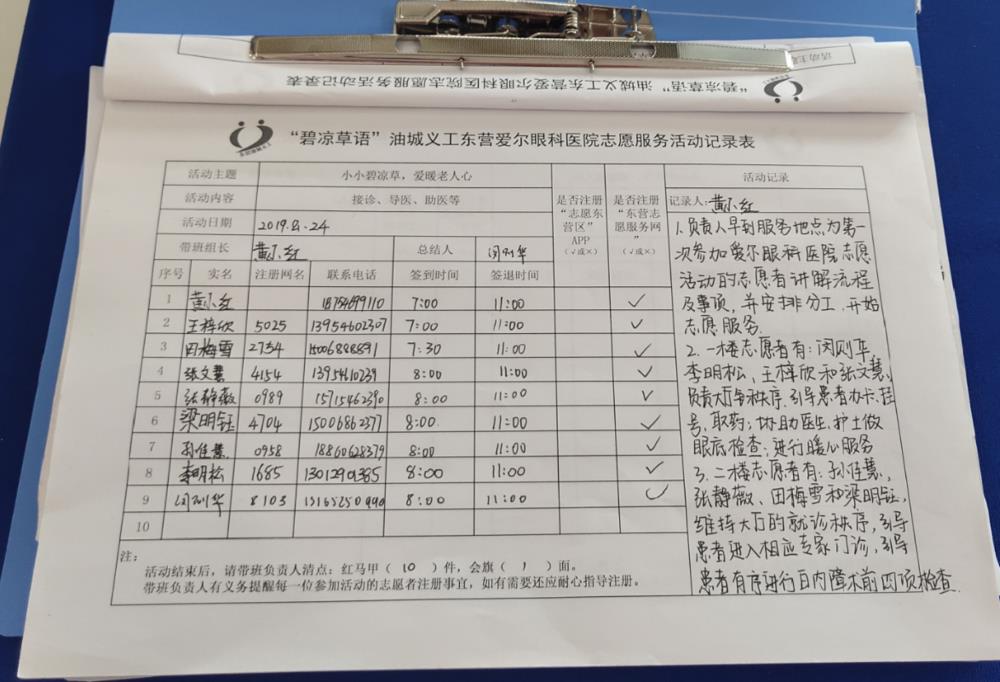 "碧凉草语"油城义工东营爱尔眼科医院志愿服务活动记录表
活动主
"碧凉草语"油城义工东营爱尔眼科医院志愿服务活动记录表
活动主题 小小碧凉草，爱暖老人心
活动内容 接诊、导医、助医等
活动日期 2019.8.24
带班组长 黄小红 总结人 闵刘华
是否注册"志愿东营区"APP（√或×）
是否注册"东营志愿服务网"（√或×）
序号 实名 注册网名 联系电话 签到时间 签退时间
1 黄小红 18754699110 7:00 11:00 ✓
2 王梓欣 5025 13954602307 7:00 11:00 ✓
3 田梅雪 2734 15006888891 7:30 11:00 ✓
4 张文慧 4154 13954610239 8:00 11:00 ✓
5 张静薇 0989 15715462390 8:00 11:00 ✓
6 梁明钰 4704 15006862377 8:00 11:00 ✓
7 孙佳慧 0958 18860628379 8:00 11:00 ✓
8 李明松 1685 13012901385 8:00 11:00 ✓
9 闵刘华 8103 8:00 11:00 ✓
10
注：
活动结束后，请带班负责人清点：红马甲（ 10 ）件，会旗（ 1 ）面。
带班负责人有义务提醒每一位参加活动的志愿者注册事宜，如有需要还应耐心指导注册。
活动记录
记录人：黄小红
1.负责人早到服务地点为第
一次参加爱尔眼科医院志愿
活动的志愿者讲解流程
及事项，并安排分工，开始
志愿服务.
2.一楼志愿者有：闵刘华，
李明松，王梓欣和张文慧，
负责大厅争秩序，引导患者办卡、挂
号，取药；协助医生、护士做
眼底检查；进行暖心服务
3.二楼志愿者有：孙佳慧，
张静薇、田梅雪和梁明钰，
维持大厅的就诊秩序，引导
患者进入相应专家门诊，引导
患者有序进行白内障术前四项检查.